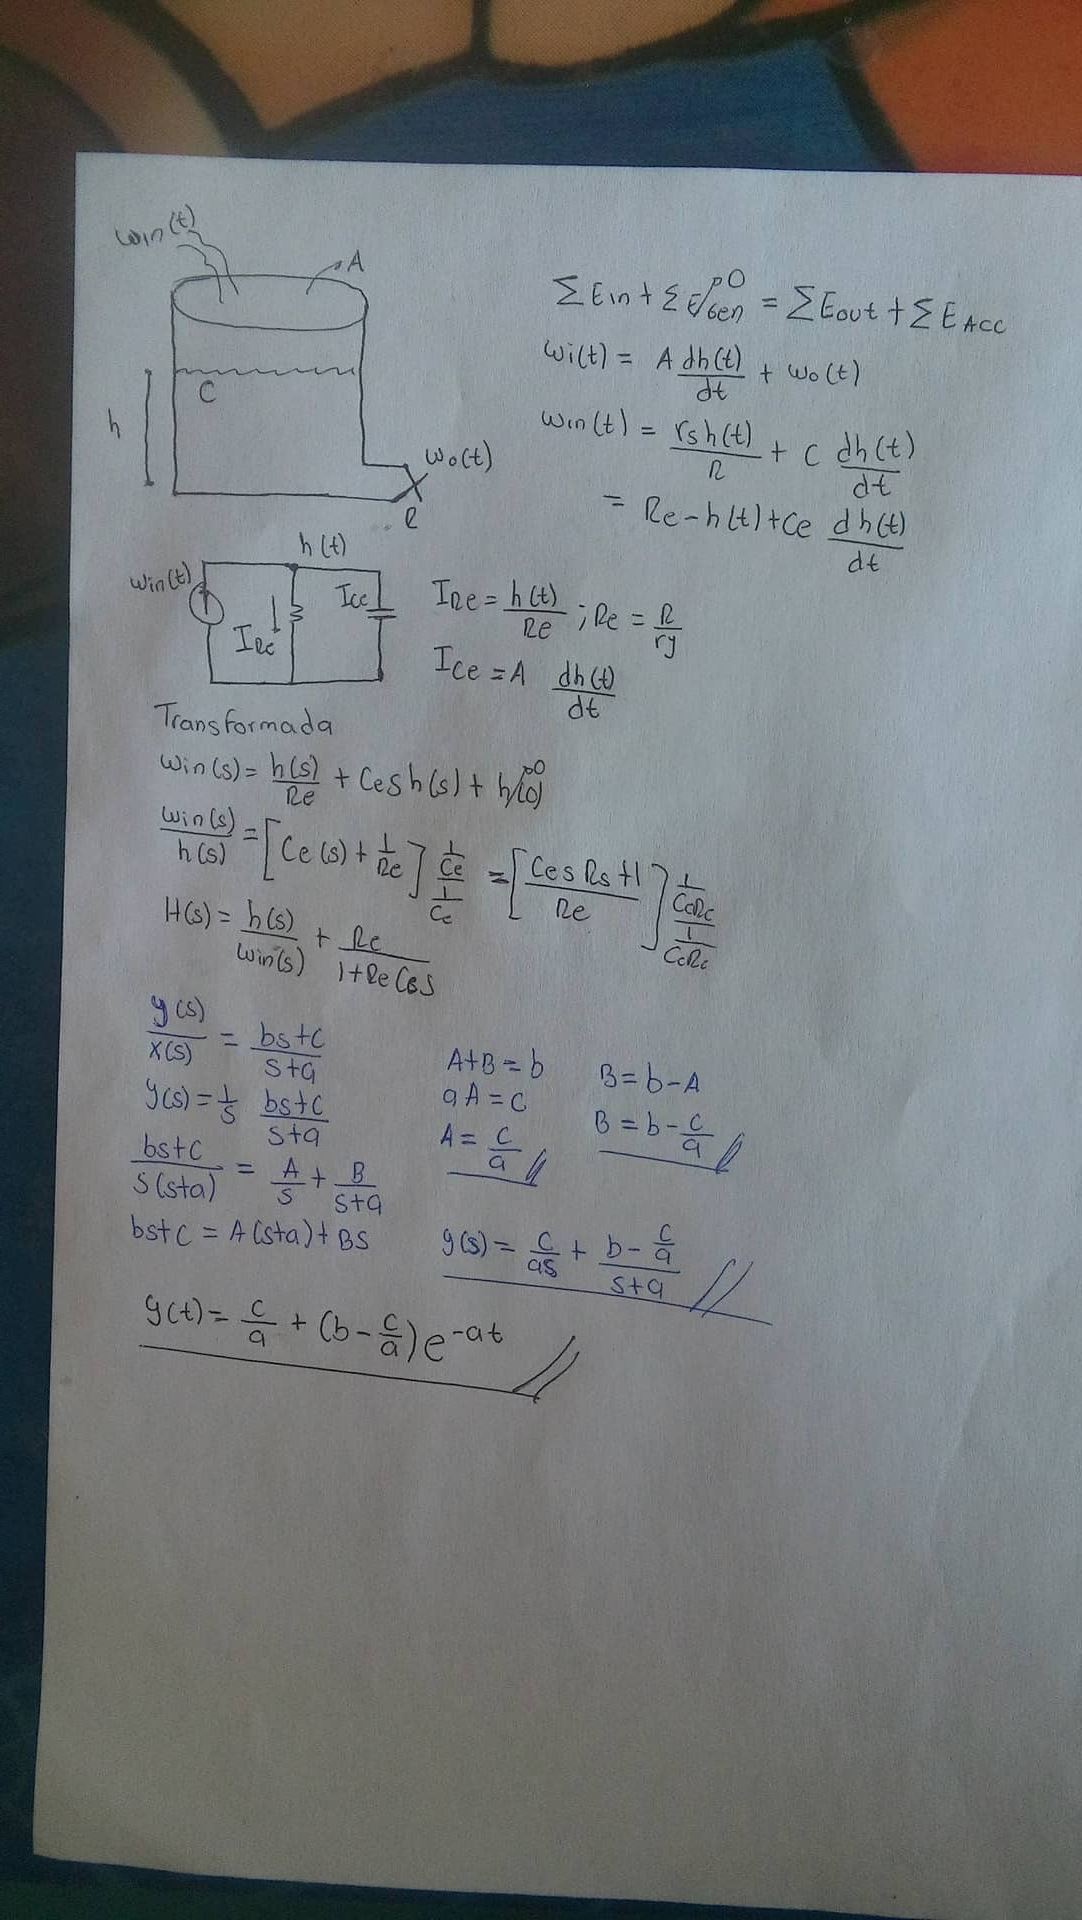 win(t)
A
C
h
wo(t)
R
ΣEin + ΣEgen→0 = ΣEout + ΣEACC
wi(t) = A dh(t)/dt + wo(t)
win(t) = rsh(t)/R + C dh(t)/dt
= Re-h(t)+Ce dh(t)/dt
h(t)
win(t)
IRe
Icc
IRe = h(t)/Re ; Re = R/rg
ICe = A dh(t)/dt
Transformada
win(s) = h(s)/Re + Cesh(s) + h(0)→0
win(s)/h(s) = [Ce(s) + 1/Re] (1/Ce)/(1/Cc) = [(CesRs+1)/Re] (1/CcRc)/(1/CcRc)
H(s) = h(s)/win(s) + Re/(1+ReCes)
y(s)/x(s) = (bs+c)/(s+a)
y(s) = 1/s (bs+c)/(s+a)
(bs+c)/(s(s+a)) = A/s + B/(s+a)
bs+c = A(s+a)+BS
A+B=b
aA=c
A = c/a
B=b-A
B=b-c/a
y(s) = c/as + (b-c/a)/(s+a)
y(t) = c/a + (b-c/a)e^-at